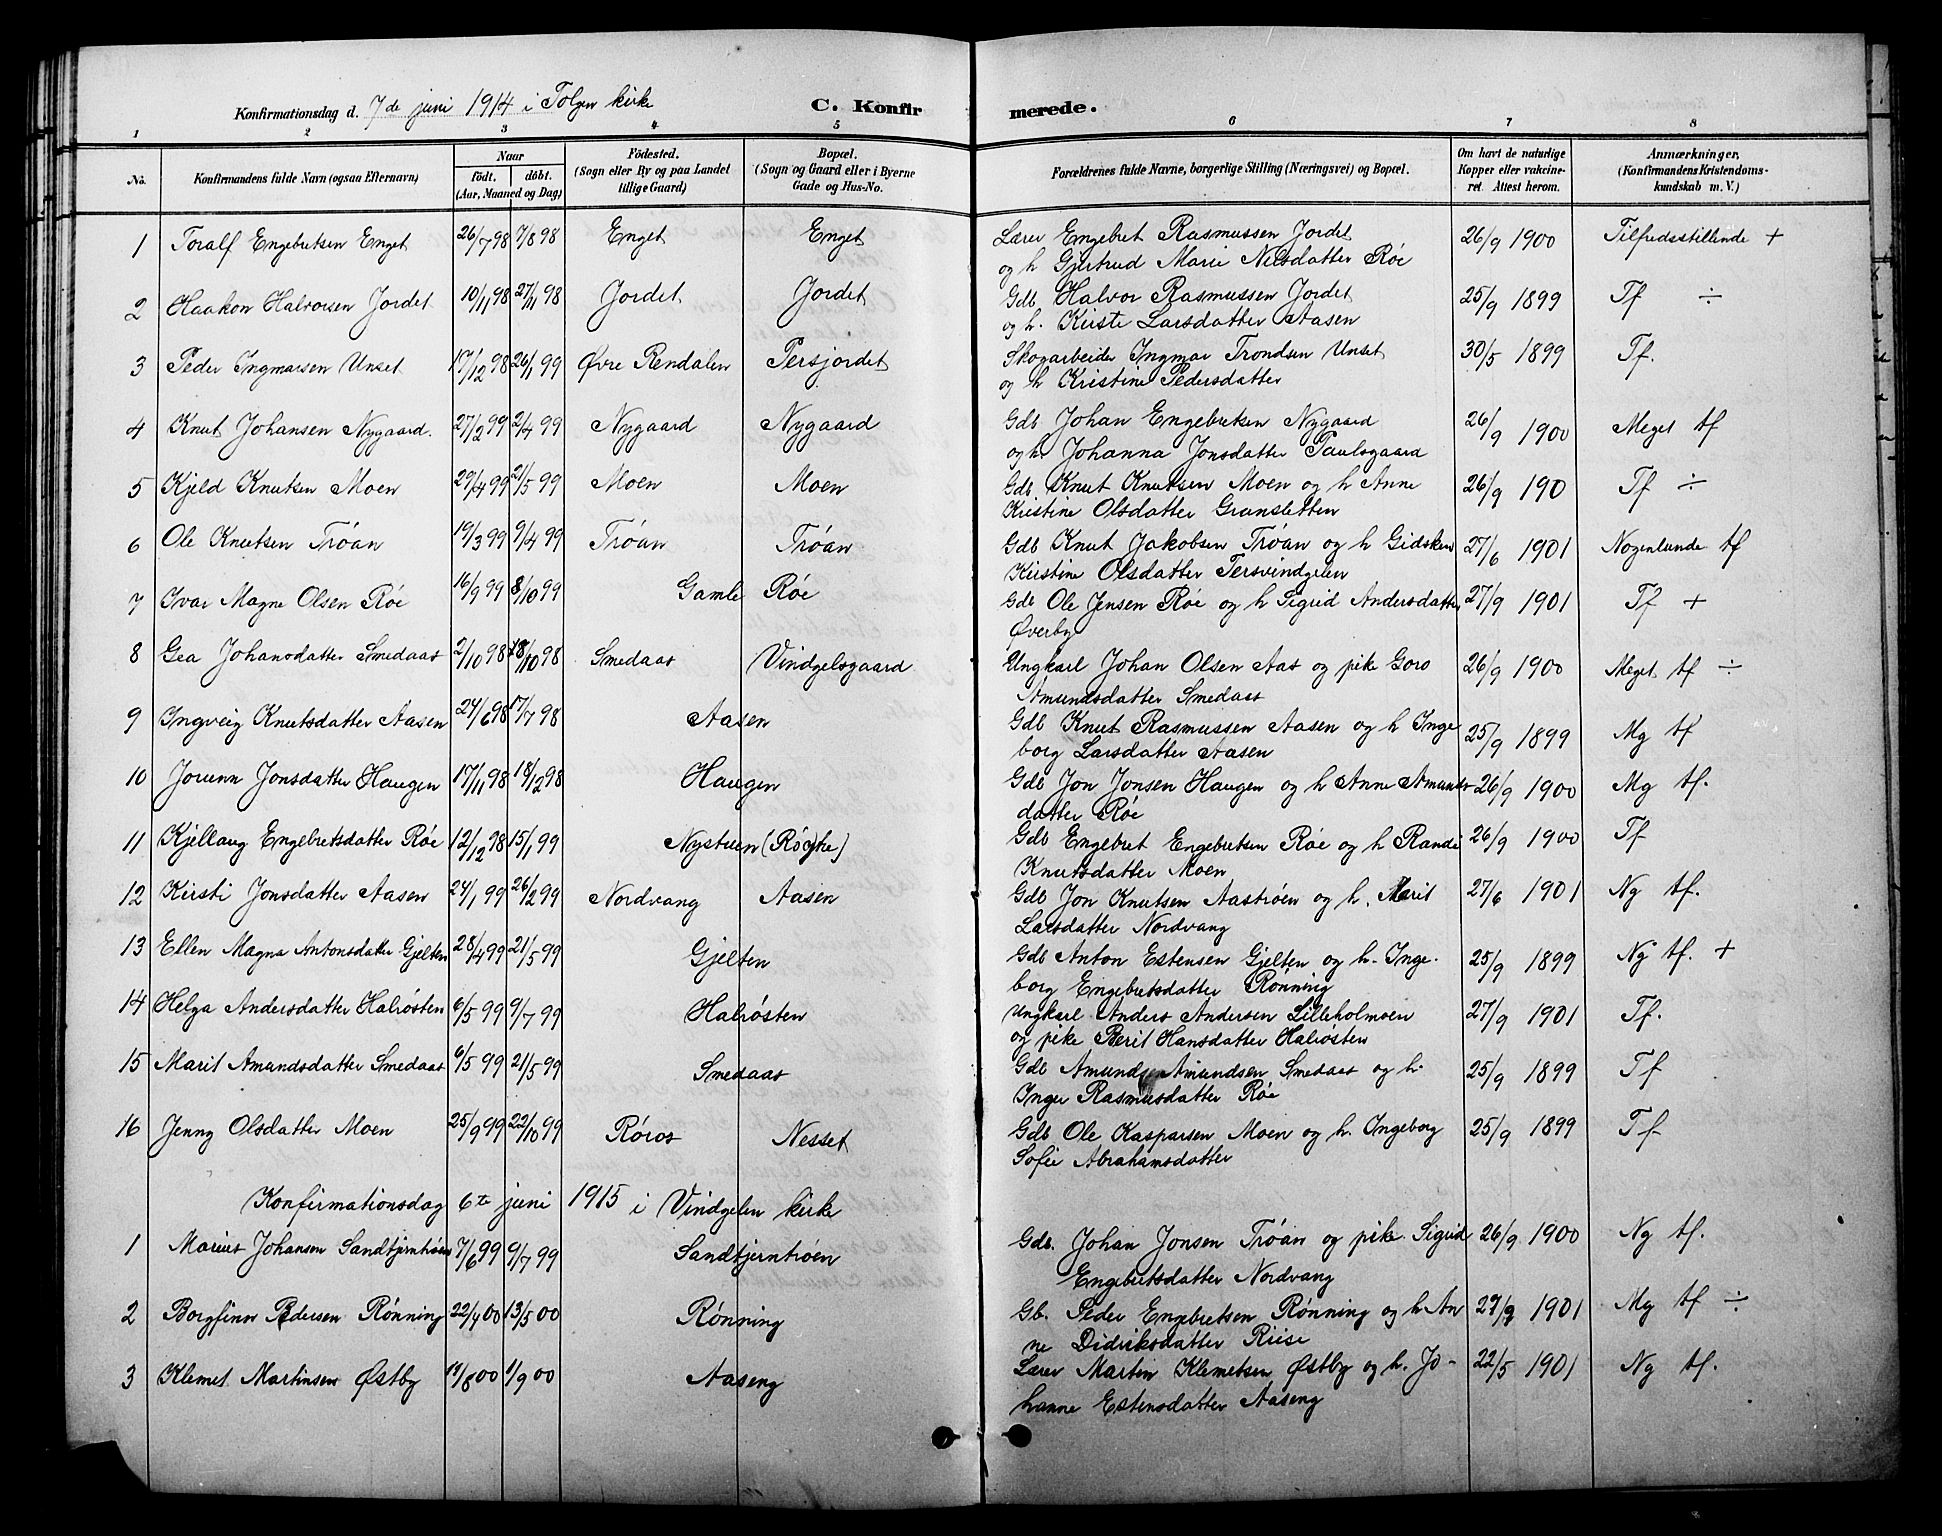 Konfirmationsdag d. 7de juni 1914 i Tolgen kirke C. Konfirmerede.
1 2 3 4 5 6 7 8
No. Konfirmandens fulde Navn (ogsaa Efternavn) Naar födt. döbt. (Aar, Maaned og Dag) Födested. (Sogn eller By og paa Landet tillige Gaard) Bopæl. (Sogn og Gaard eller i Byerne Gade og Hus-No. Forældrenes fulde Navne, borgerlige Stilling (Næringsvei) og Bopæl. Om havt de naturlige Kopper eller vakcineret. Attest herom. Anmærkninger, (Konfirmandens Kristendomskundskab m. V.)
1 Toralf Engebretsen Enget 26/7 98 7/8 98 Enget Enget Lærer Engebret Rasmussen Jordet 26/9 1900 Tilfredsstillende +
og h Gjertrud Marie Nilsdatter Røe
2 Haakon Halvorsen Jordet 10/11 98 27/11 98 Jordet Jordet Gdb Halvor Rasmussen Jordet 25/9 1899 Tf ÷
og h. Kirsti Larsdatter Aasen
3 Peder Ingmarsen Unset 17/12 98 26/1 99 Øvre Rendalen Persjordet Skogarbeider Ingmar Trondsen Unset 30/5 1899 Tf.
og h Kristine Pedersdatter
4 Knut Johansen Nygaard. 27/2 99 2/4 99 Nygaard Nygaard Gdb Johan Engebretsen Nygaard 26/9 1900 Meget tf
og h. Johanna Jonsdatter Paulsgaard
5 Kjeld Knutsen Moen 29/4 99 21/5 99 Moen Moen Gdb. Knut Knutsen Moen og h Anne 26/9 190 Tf ÷
Kristine Olsdatter Gransletten
6 Ole Knutsen Trøan 19/3 99 9/4 99 Trøan Trøan Gdb Knut Jakobsen Trøan og h Gidsken 27/6 1901 Nogenlunde tf
Kirstine Olsdatter Tersvindgelen
7 Ivar Magne Olsen Røe 16/9 99 8/10 99 Gamle Røe Gdb Ole Jensen Røe og h Sigrid Andersdatter 27/9 1901 Tf +
Øverby
8 Gea Johansdatter Smedaas 2/10 98 18/10 98 Smedaas Vindgelsgaard Ungkarl Johan Olsen Aas og pike Goro 26/9 1900 Meget tf ÷
Amundsdatter Smedaas
9 Ingveig Knutsdatter Aasen 24/6 98 17/7 98 Aasen Gdb Knut Rasmussen Aasen og h Inge 25/9 1899 Mg tf
borg Larsdatter Aasen
10 Jorunn Jonsdatter Haugen 17/11 98 18/12 98 Haugen Gdb Jon Jonsen Haugen og h Anne Amunds 26/9 1900 Mg tf.
datter Røe
11 Kjellaug Engebretsdatter Røe 12/12 98 15/1 99 Nystuen (Røe) Gdb Engebret Engebretsen Røe og h Randi 26/9 1900 Tf
Knutsdatter Moen
12 Kirsti Jonsdatter Aasen 24/1 99 26/2 99 Nordvang Aasen Gdb Jon Knutsen Aastrøen og h. Marit 27/6 1901 Ng tf.
Larsdatter Nordvang
13 Ellen Magna Antonsdatter Gjelten 28/4 99 21/5 99 Gjelten Gdb Anton Estensen Gjelten og h. Inge- 25/9 1899 Ng tf. +
borg Engebretsdatter Rønning
14 Helga Andersdatter Halrøsten 6/5 99 9/7 99 Halrøsten Ungkarl Anders Andersen Lilleholmoen 27/9 1901 Tf.
og pike Berit Hansdatter Halrøsten
15 Marit Amundsdatter Smedaas 6/5 99 21/5 99 Smedaas Gdb Amunds Amundsen Smedaas og h. 25/9 1899 Tf
Inger Rasmusdatter Røe
16 Jenny Olsdatter Moen 25/9 99 22/10 99 Røros Nesset Gdb Ole Kasparsen Moen og h. Ingeborg 25/9 1899 Tf
Sofie Abrahamsdatter
Konfirmationsdag 6te juni 1915 i Vindgelen kirke
1 Marius Johansen Sandtjerntrøen 7/6 99 9/7 99 Sandtjerntrøen Gdb. Johan Jonsen Trøan og pike Sigrid 26/9 1900 Ng tf.
Engebretsdatter Nordvang
2 Borgfinn Pedersen Rønning 22/4 00 13/5 00 Rønning Gb. Peder Engebretsen Rønning og h An 27/9 1901 Mg tf ÷
ne Didriksdatter Riise
3 Klemet Martinsen Østby 19/8 00 1/9 00 Aaseng Lærer Martin Klemetsen Østby og h. Jo- 22/5 1901 Ng tf.
hanne Estensdatter Aaseng